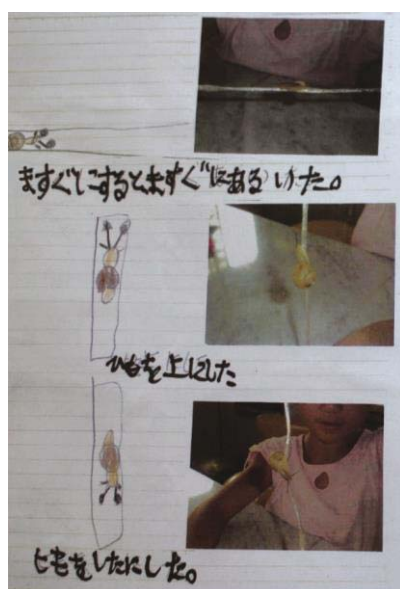 ますぐにするとますぐにあるいた。
ひもを上にした
ヒモをしたにした。